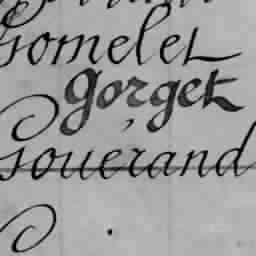 Gomelet
gorget
Gouerand